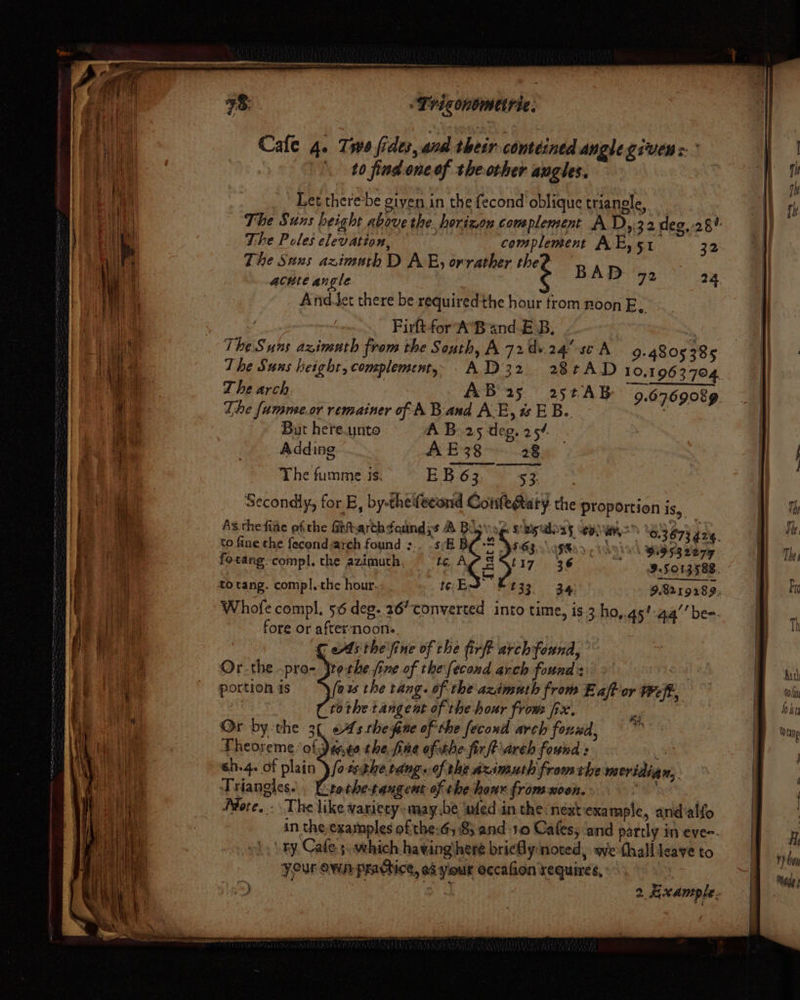 78. Trigonometrie.
Case 4. Two sides, and their conteined angle given:
to find one of the other angles.
Let there be given in the second oblique triangle,
The Suns height above the horizon complement A D, 32 deg. 28'
The Poles elevation, complement A E, 51 32
The Suns azimuth D A E, or rather the
acute angle } BAD 72 24
And let there be required the hour from noon E.
First for A B and E B,
The Suns azimuth from the South, A 72 de 24' sc A 9.4805385
The Suns height, complement, A D 32 28 t A D 10.1963704
The arch A B 25 25 t A B 9.6769089
The summe or remainer of A B and A E, is E B.
But here unto A B 25 deg. 25'
Adding A E 38 28
The summe is. E B 63 53
Secondly, for E, by the second Consectary the proportion is,
As the sine of the first arch found; s A B
to sine the second arch found: s E B
so tang. compl. the azimuth, tc A 17 36 9.5013588
to tang. compl. the hour. tc E t 33 34 9.8219289.
Whose compl. 56 deg. 26' converted into time, is 3 ho. 45' 44'' be-
fore or afternoon.
Or the pro-
portion is
{ As the sine of the first arch found,
to the sine of the second arch found:
so is the tang. of the azimuth from East or West,
to the tangent of the hour from six.
Or by the 3
Theoreme of
ch. 4. of plain
Triangles.
{ As the sine of the second arch found,
is to the sine of the first arch found:
so is the tang. of the azimuth from the meridian,
to the tangent of the hour from noon.
Note. The like variety may be used in the next example, and also
in the examples of the 6, 8, and 10 Cases, and partly in eve-
ry Case; which having here briefly noted, we shall leave to
your own practice, as your occasion requires,
2 Example.